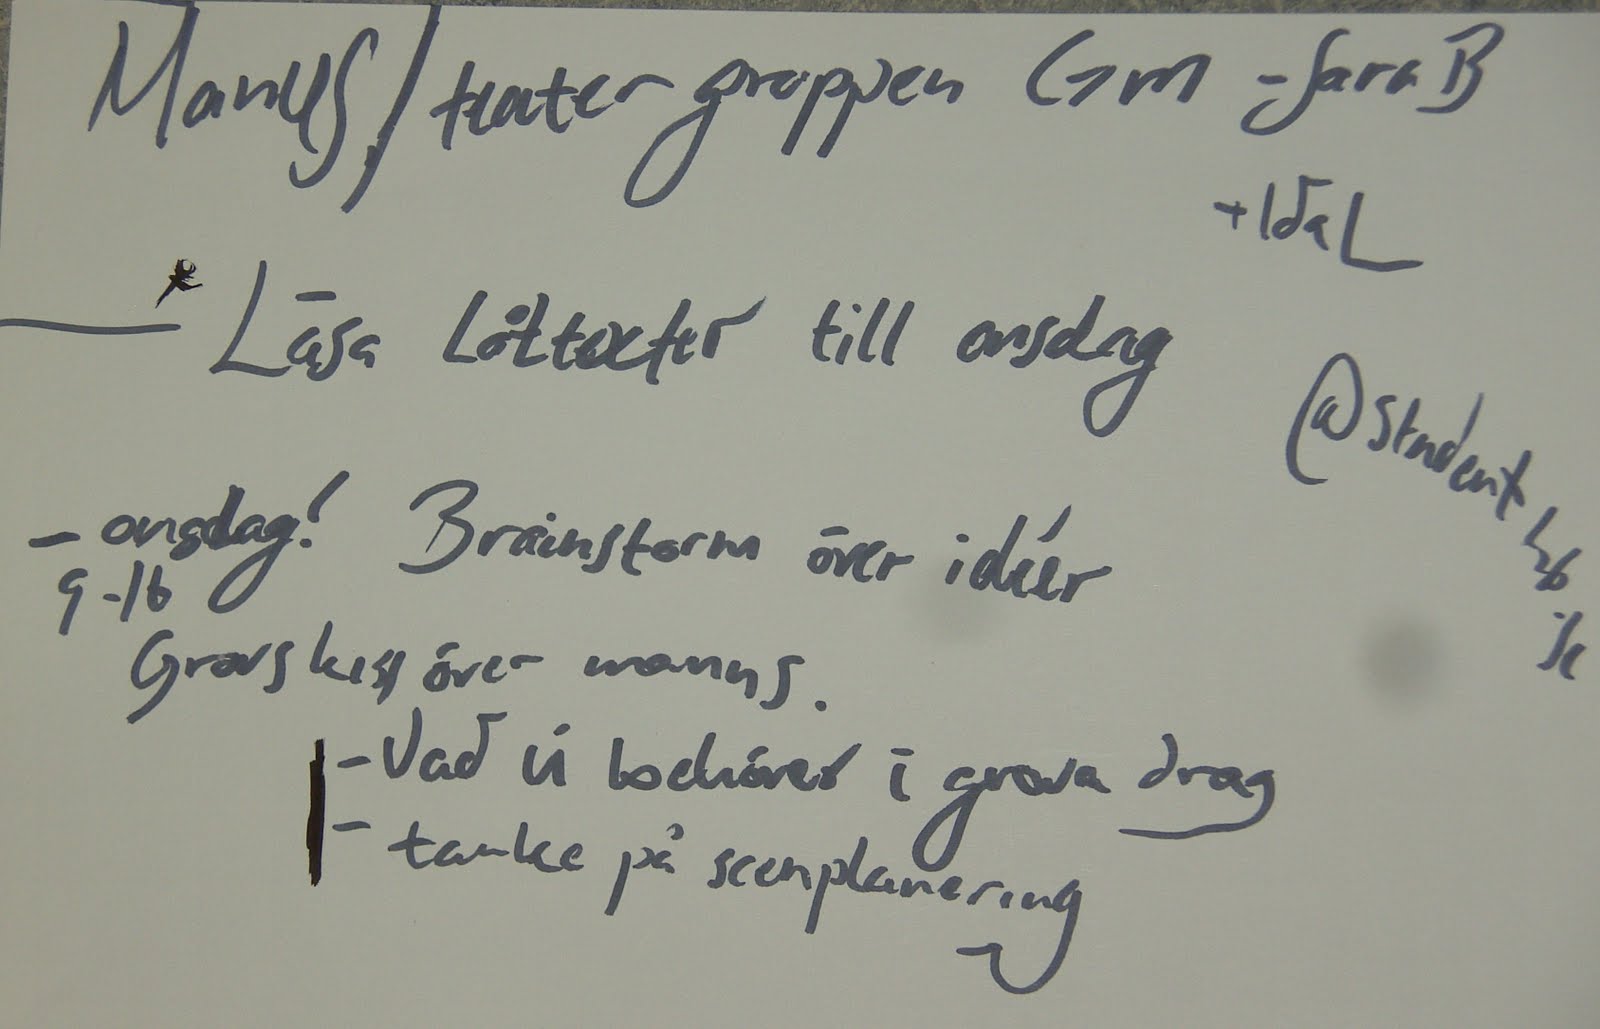 Manus/teatergruppen Gm - Sara B
+ Ida L
* Läsa Låttexter till onsdag
@student
hb
se
- onsdag! Brainstorm över idéer
9-16
Grovskiss över manus.
- Vad vi behöver i grova drag
- tanke på scenplanering